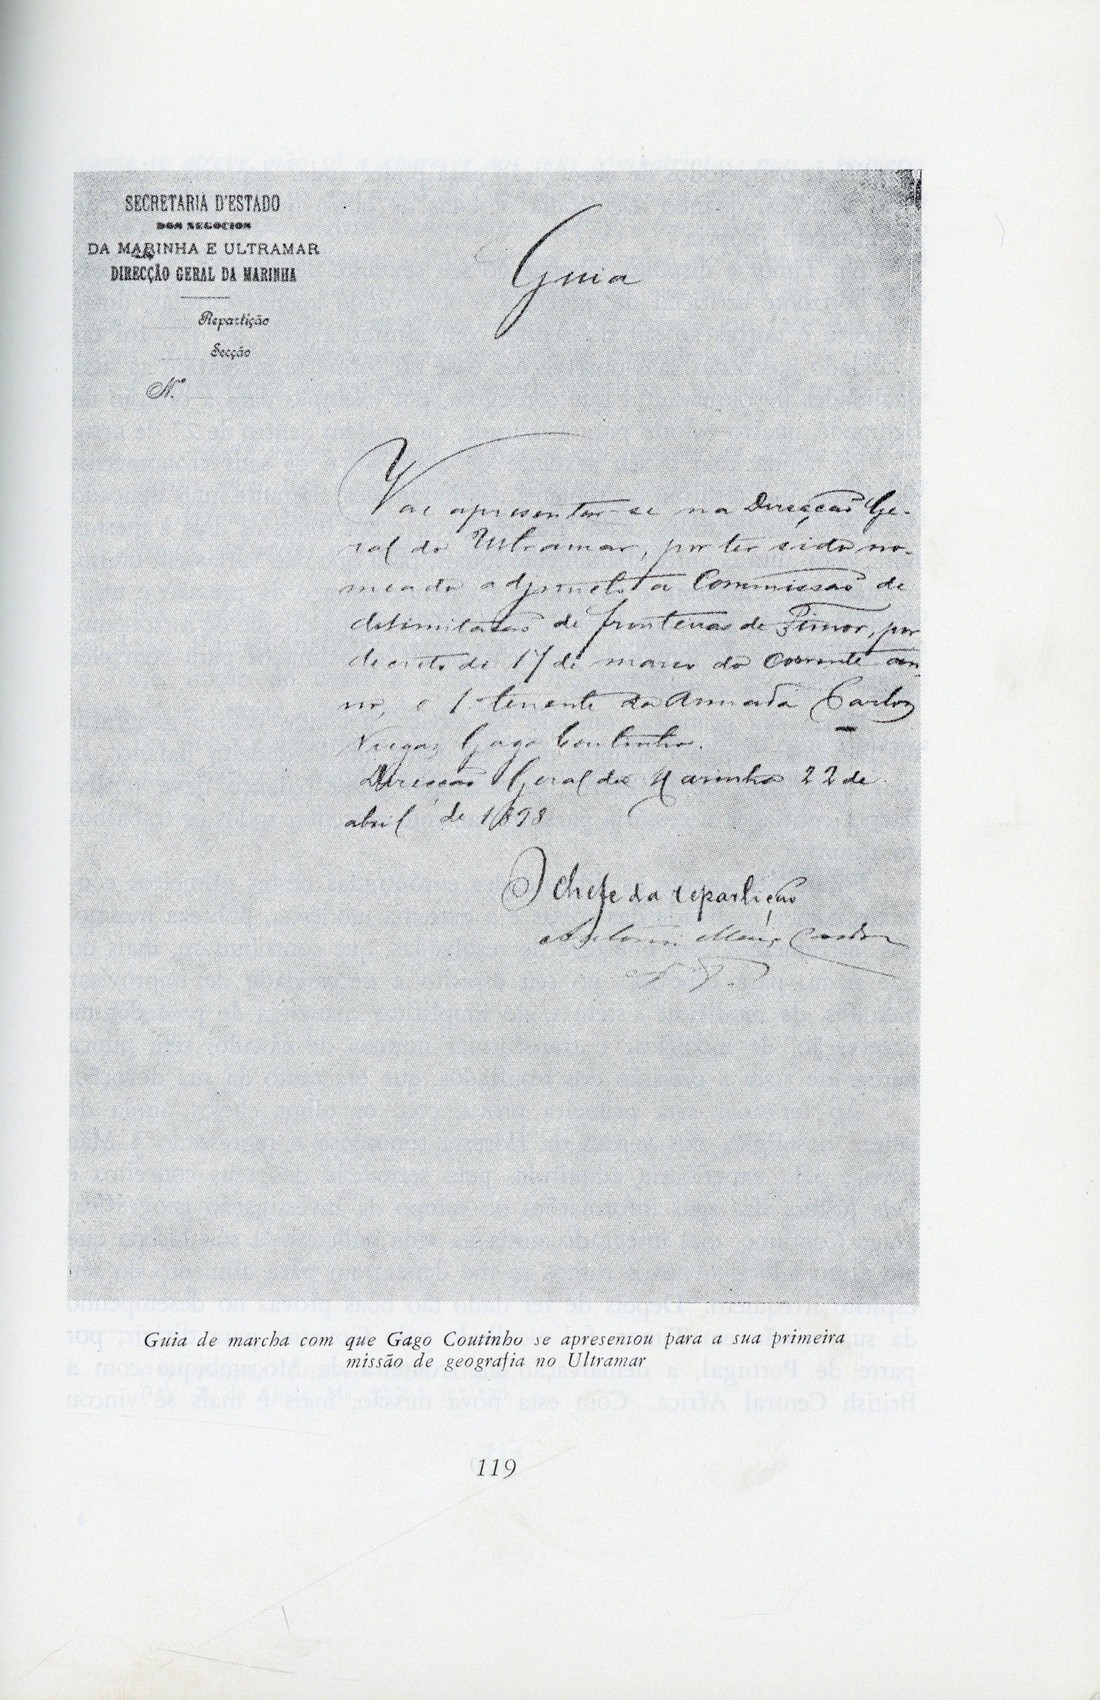 SECRETARIA D'ESTADO
DOS NEGOCIOS
DA MARINHA E ULTRAMAR
DIRECÇÃO GERAL DA MARINHA
Repartição
Secção
N.º
Guia
Vae apresentar-se na Direcção Ge-
ral do Ultramar, por ter sido no-
meado adjunto á Commissão de
delimitação de fronteiras de Timor, por
decreto de 17 de março do corrente an-
no, o 1º tenente da Armada Carlos
Viegas Gago Coutinho.
Direcção Geral da Marinha 22 de
abril de 1898
O Chefe da repartição
Guia de marcha com que Gago Coutinho se apresentou para a sua primeira
missão de geografia no Ultramar
119